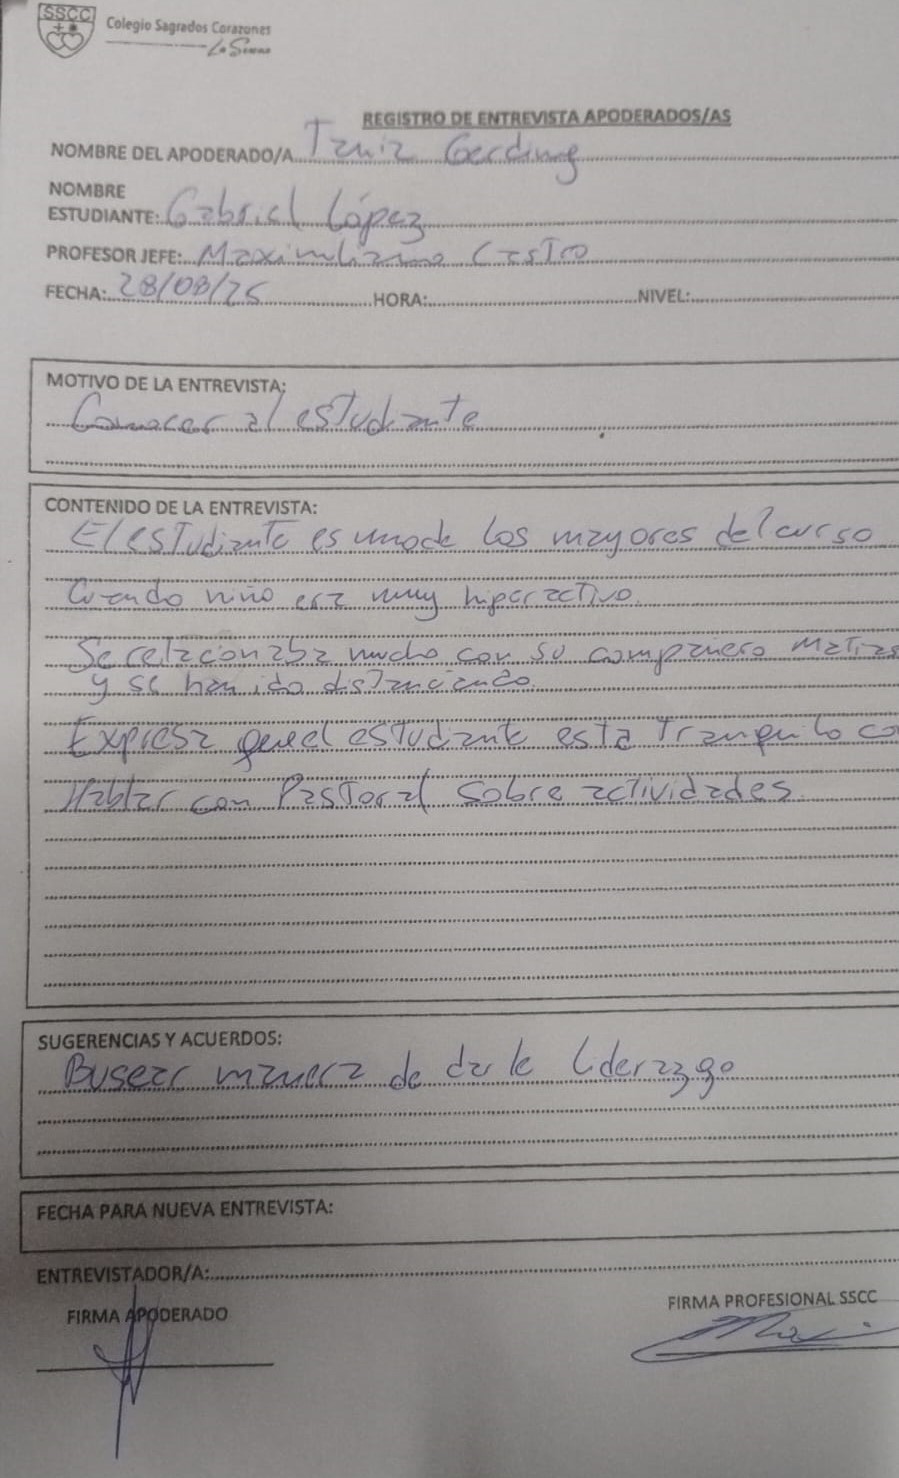 SSCC
Colegio Sagrados Corazones
La Serena
REGISTRO DE ENTREVISTA APODERADOS/AS
NOMBRE DEL APODERADO/A Gerding
NOMBRE
ESTUDIANTE: Gabriel López
PROFESOR JEFE: Maximiliano Castro
FECHA: 28/08/25 HORA: NIVEL:
MOTIVO DE LA ENTREVISTA:
Conocer al estudiante
CONTENIDO DE LA ENTREVISTA:
El estudiante es uno de los mayores del curso
Cuando niño era muy hiperactivo.
Se relacionaba mucho con su compañero Matias
y se han ido distanciando.
Expresa que el estudiante esta tranquilo co
Hablar con Pastoral sobre actividades.
SUGERENCIAS Y ACUERDOS:
Buscar manera de darle liderazgo
FECHA PARA NUEVA ENTREVISTA:
ENTREVISTADOR/A:
FIRMA APODERADO
FIRMA PROFESIONAL SSCC